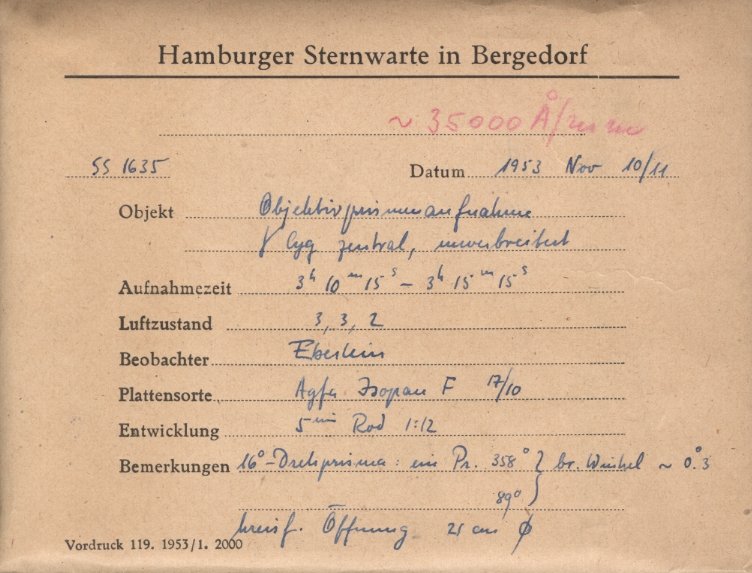 Hamburger Sternwarte in Bergedorf
~ 35000 Å/mm
SS 1635 Datum 1953 Nov 10/11
Objekt Objektivprismenaufnahme
γ Cyg zentral, unverbreitert
Aufnahmezeit 3ʰ 10ᵐ 15ˢ – 3ʰ 15ᵐ 15ˢ
Luftzustand 3, 3, 2
Beobachter Eberlein
Plattensorte Agfa Isopan F 17/10
Entwicklung 5ᵐⁱⁿ Rod 1:12
Bemerkungen 16°-Drehprisma: ein Pr. 358° } br. Winkel ~ 0°.3
89°
kreisf. Öffnung 25 cm ϕ
Vordruck 119. 1953/1. 2000